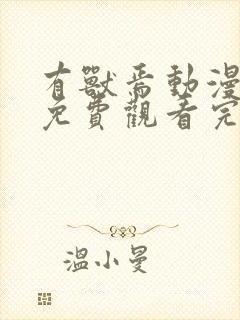 有獸焉動漫
免費觀看完
溫小曼